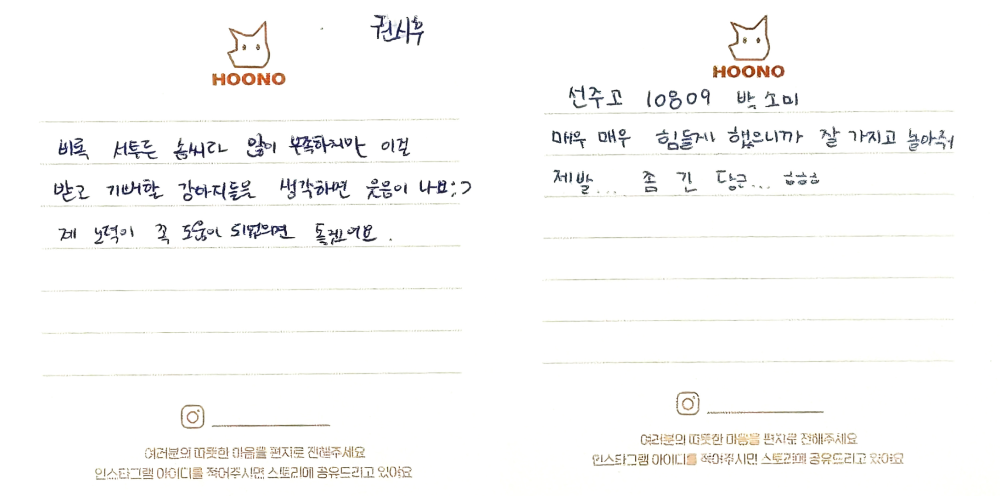 권시후
HOONO
비록 서투른 솜씨라 많이 부족하지만 이걸
받고 기뻐할 강아지들을 생각하면 웃음이 나요:)
제 노력이 꼭 도움이 되었으면 좋겠어요.
여러분의 따뜻한 마음을 편지로 전해주세요
인스타그램 아이디를 적어주시면 스토리에 공유드리고 있어요
HOONO
선주고 10809 박소미
매우 매우 힘들게 했으니까 잘 가지고 놀아줘
제발... 좀 긴 당근... ㅎㅎㅎ
여러분의 따뜻한 마음을 편지로 전해주세요
인스타그램 아이디를 적어주시면 스토리에 공유드리고 있어요